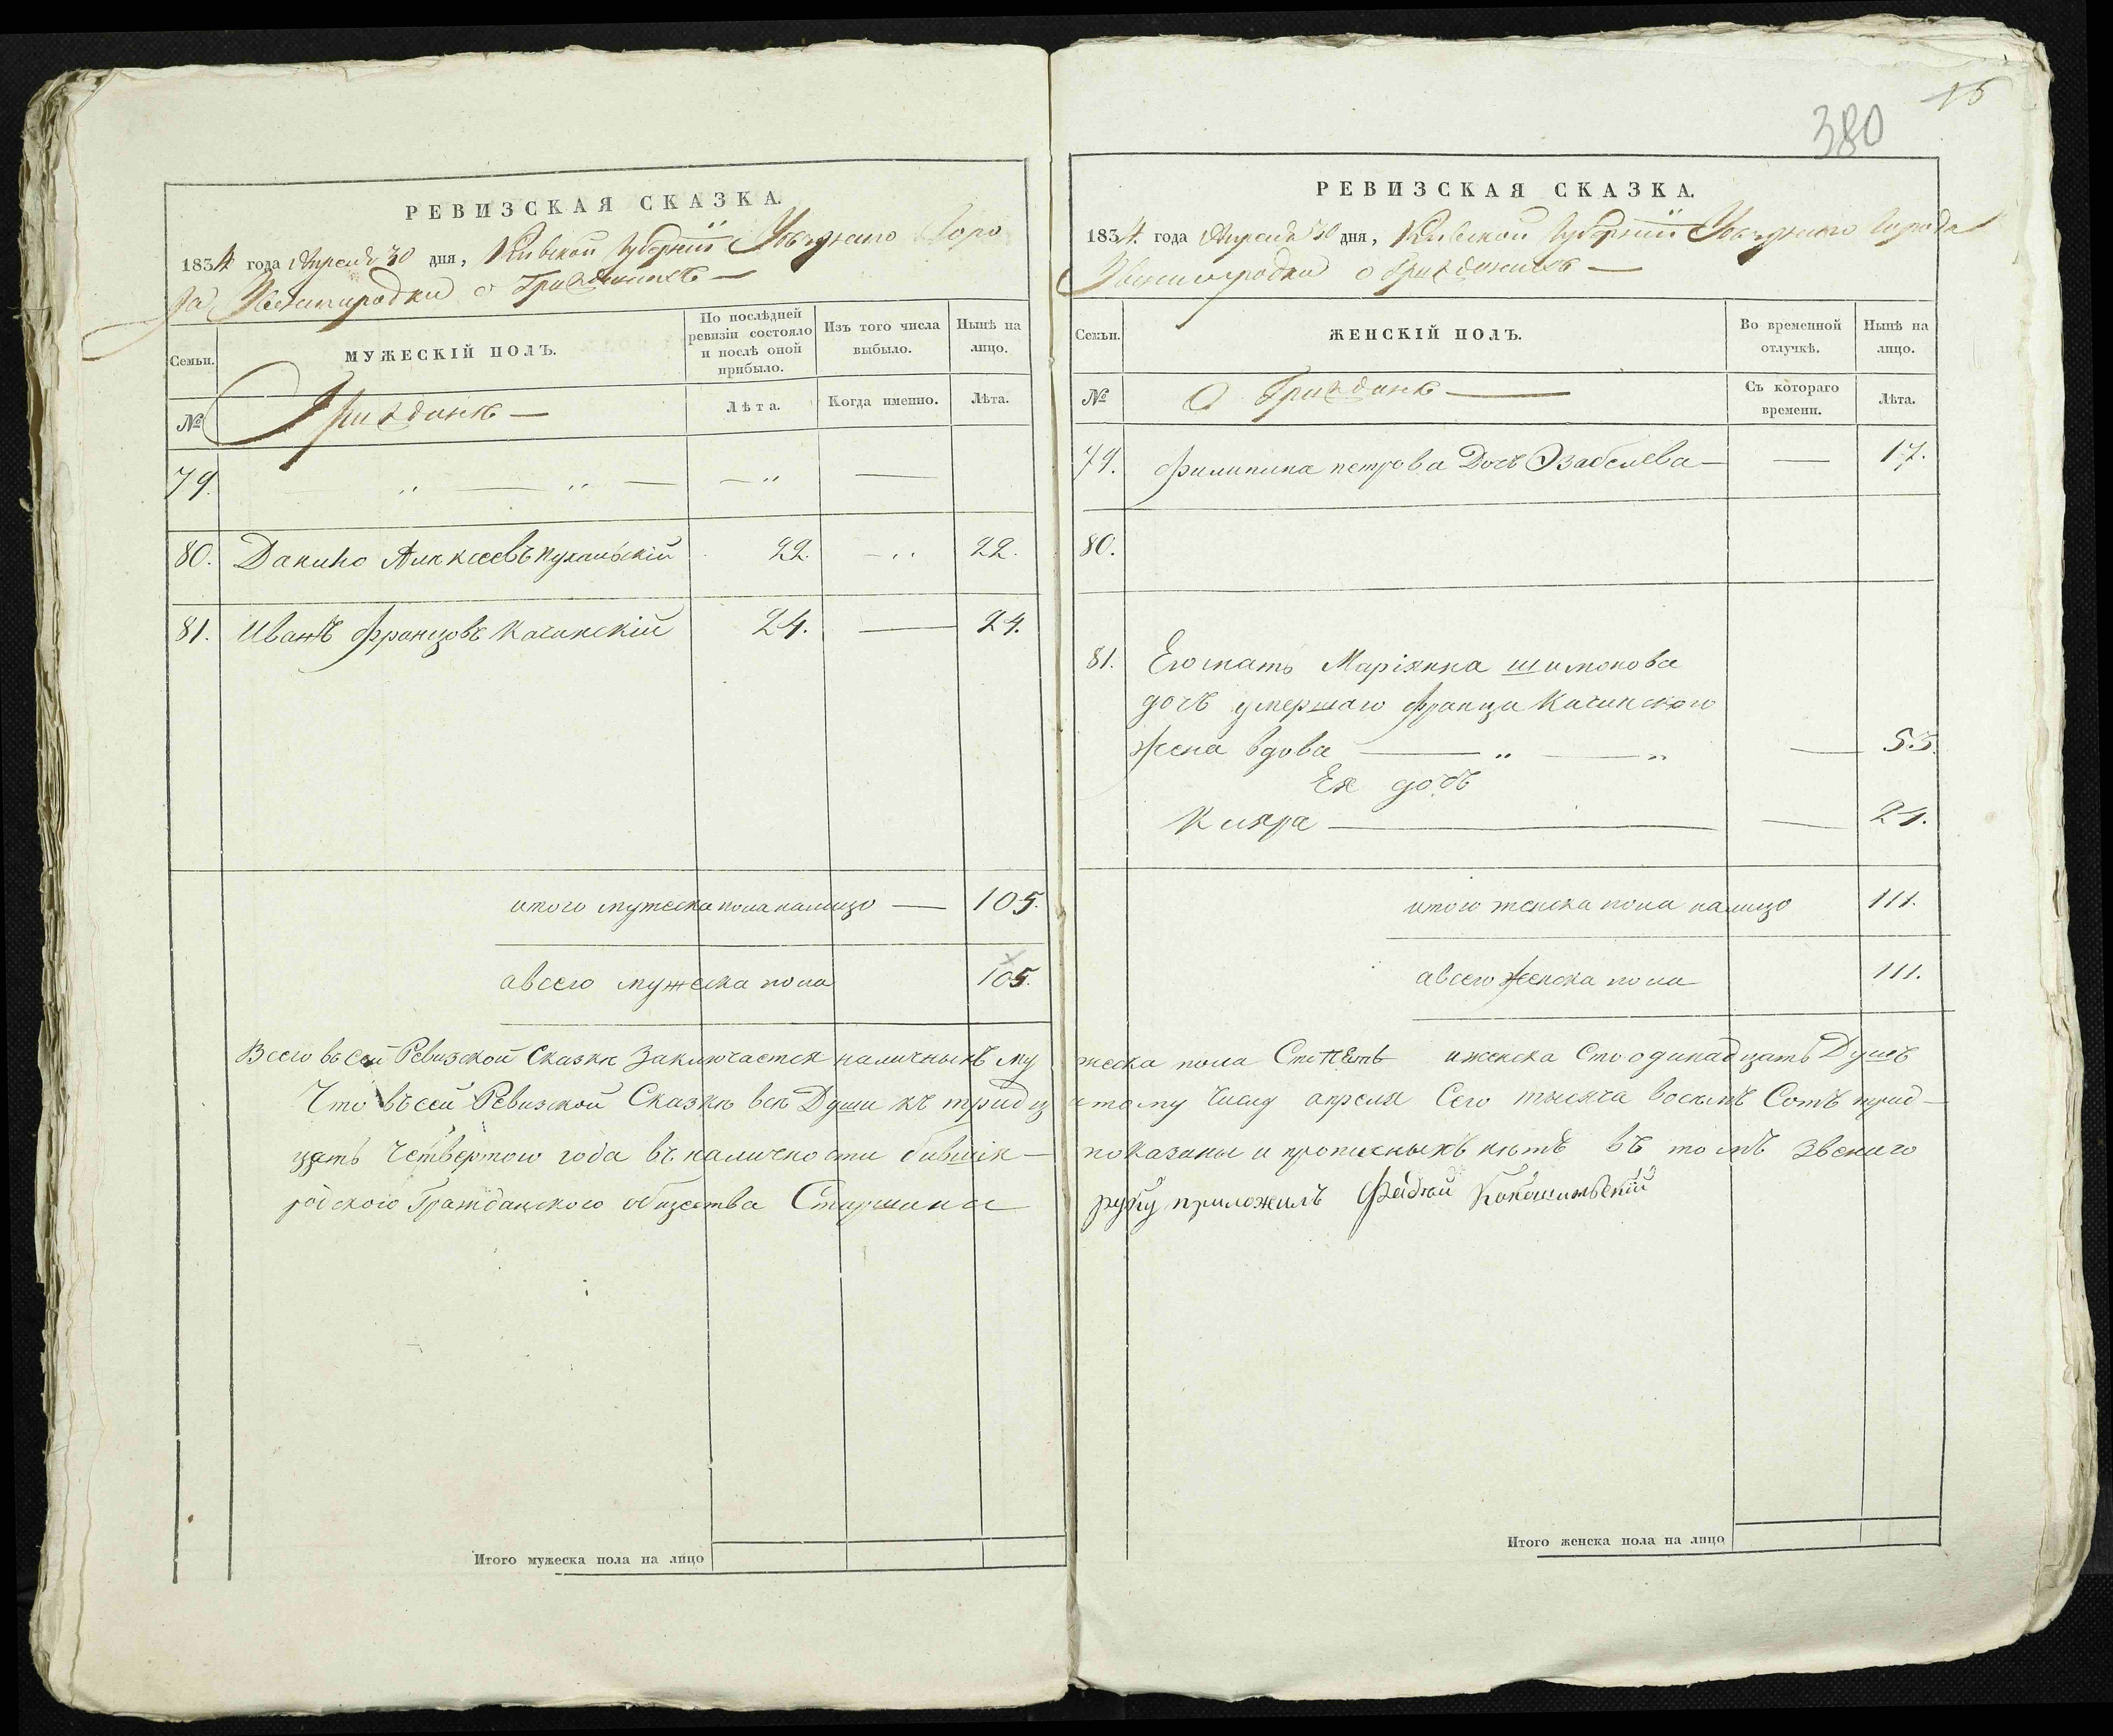 РЕВИЗСКАЯ СКАЗКА.
1834 года Апреля 30 дня, Киевской Губернии Уезднаго Горо
да Звенигородки о Гражданахъ —
Семьи.
МУЖЕСКІЙ ПОЛЪ.
По послѣдней ревизіи состояло и послѣ оной прибыло.
Изъ того числа выбыло.
Нынѣ на лицо.
№
Гражданъ —
Лѣта.
Когда именно.
Лѣта.
79.
80. Данило Алексеевъ 22. 22.
81. Иванъ Францовъ Качинскій 24. — 24.
итого мужеска пола налицо — 105.
а всего мужеска пола 105.
Всего въ сей Ревизской Сказкѣ Заключается наличныхъ му
Что въ сей Ревизской Сказкѣ всѣ Души къ тридц
цать Четвертого года въ наличности бывшія —
родского Гражданского общества Старшина
Итого мужеска пола на лицо
380
16
РЕВИЗСКАЯ СКАЗКА.
1834. года Апреля 30 дня, Киевской Губернии Уезднаго Города
Звенигородки о Гражданахъ —
Семьи.
ЖЕНСКІЙ ПОЛЪ.
Во временной отлучкѣ.
Нынѣ на лицо.
№
О Гражданъ —
Съ котораго времени.
Лѣта.
79. Филипина петрова Дочь — 17.
80.
81. Его мать Маріянна шимонова
дочь умершаго Франца Качинского
жена вдова — 53.
Ея дочь
Кляра — 21.
итого женска пола налицо 111.
а всего женска пола 111.
жеска пола Сто пять и женска Сто одинадцать Душъ
атому числу апреля Сего тысяча восемъ Сотъ трид-
показаны и прописныхъ нѣтъ въ томъ Звениго
руку приложилъ Фадей
Итого женска пола на лицо